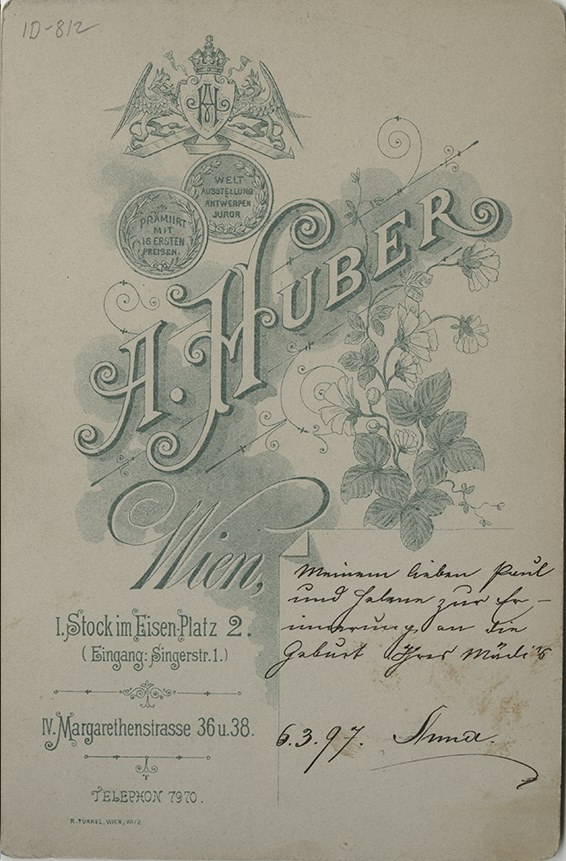 ID-812
AH
WELT
AUSSTELLUNG
ANTWERPEN
JUROR
PRÄMIIRT
MIT
16 ERSTEN
PREISEN.
A. HUBER
Wien,
I. Stock im Eisen-Platz 2.
(Eingang: Singerstr. 1.)
IV. Margarethenstrasse 36 u. 38.
TELEPHON 7970.
R. TÜRKEL, WIEN, VII/2
Meinem lieben Paul
und Helene zur Er-
innerung an die
Geburt Ihres Mädi's
6.3.97. Anna.